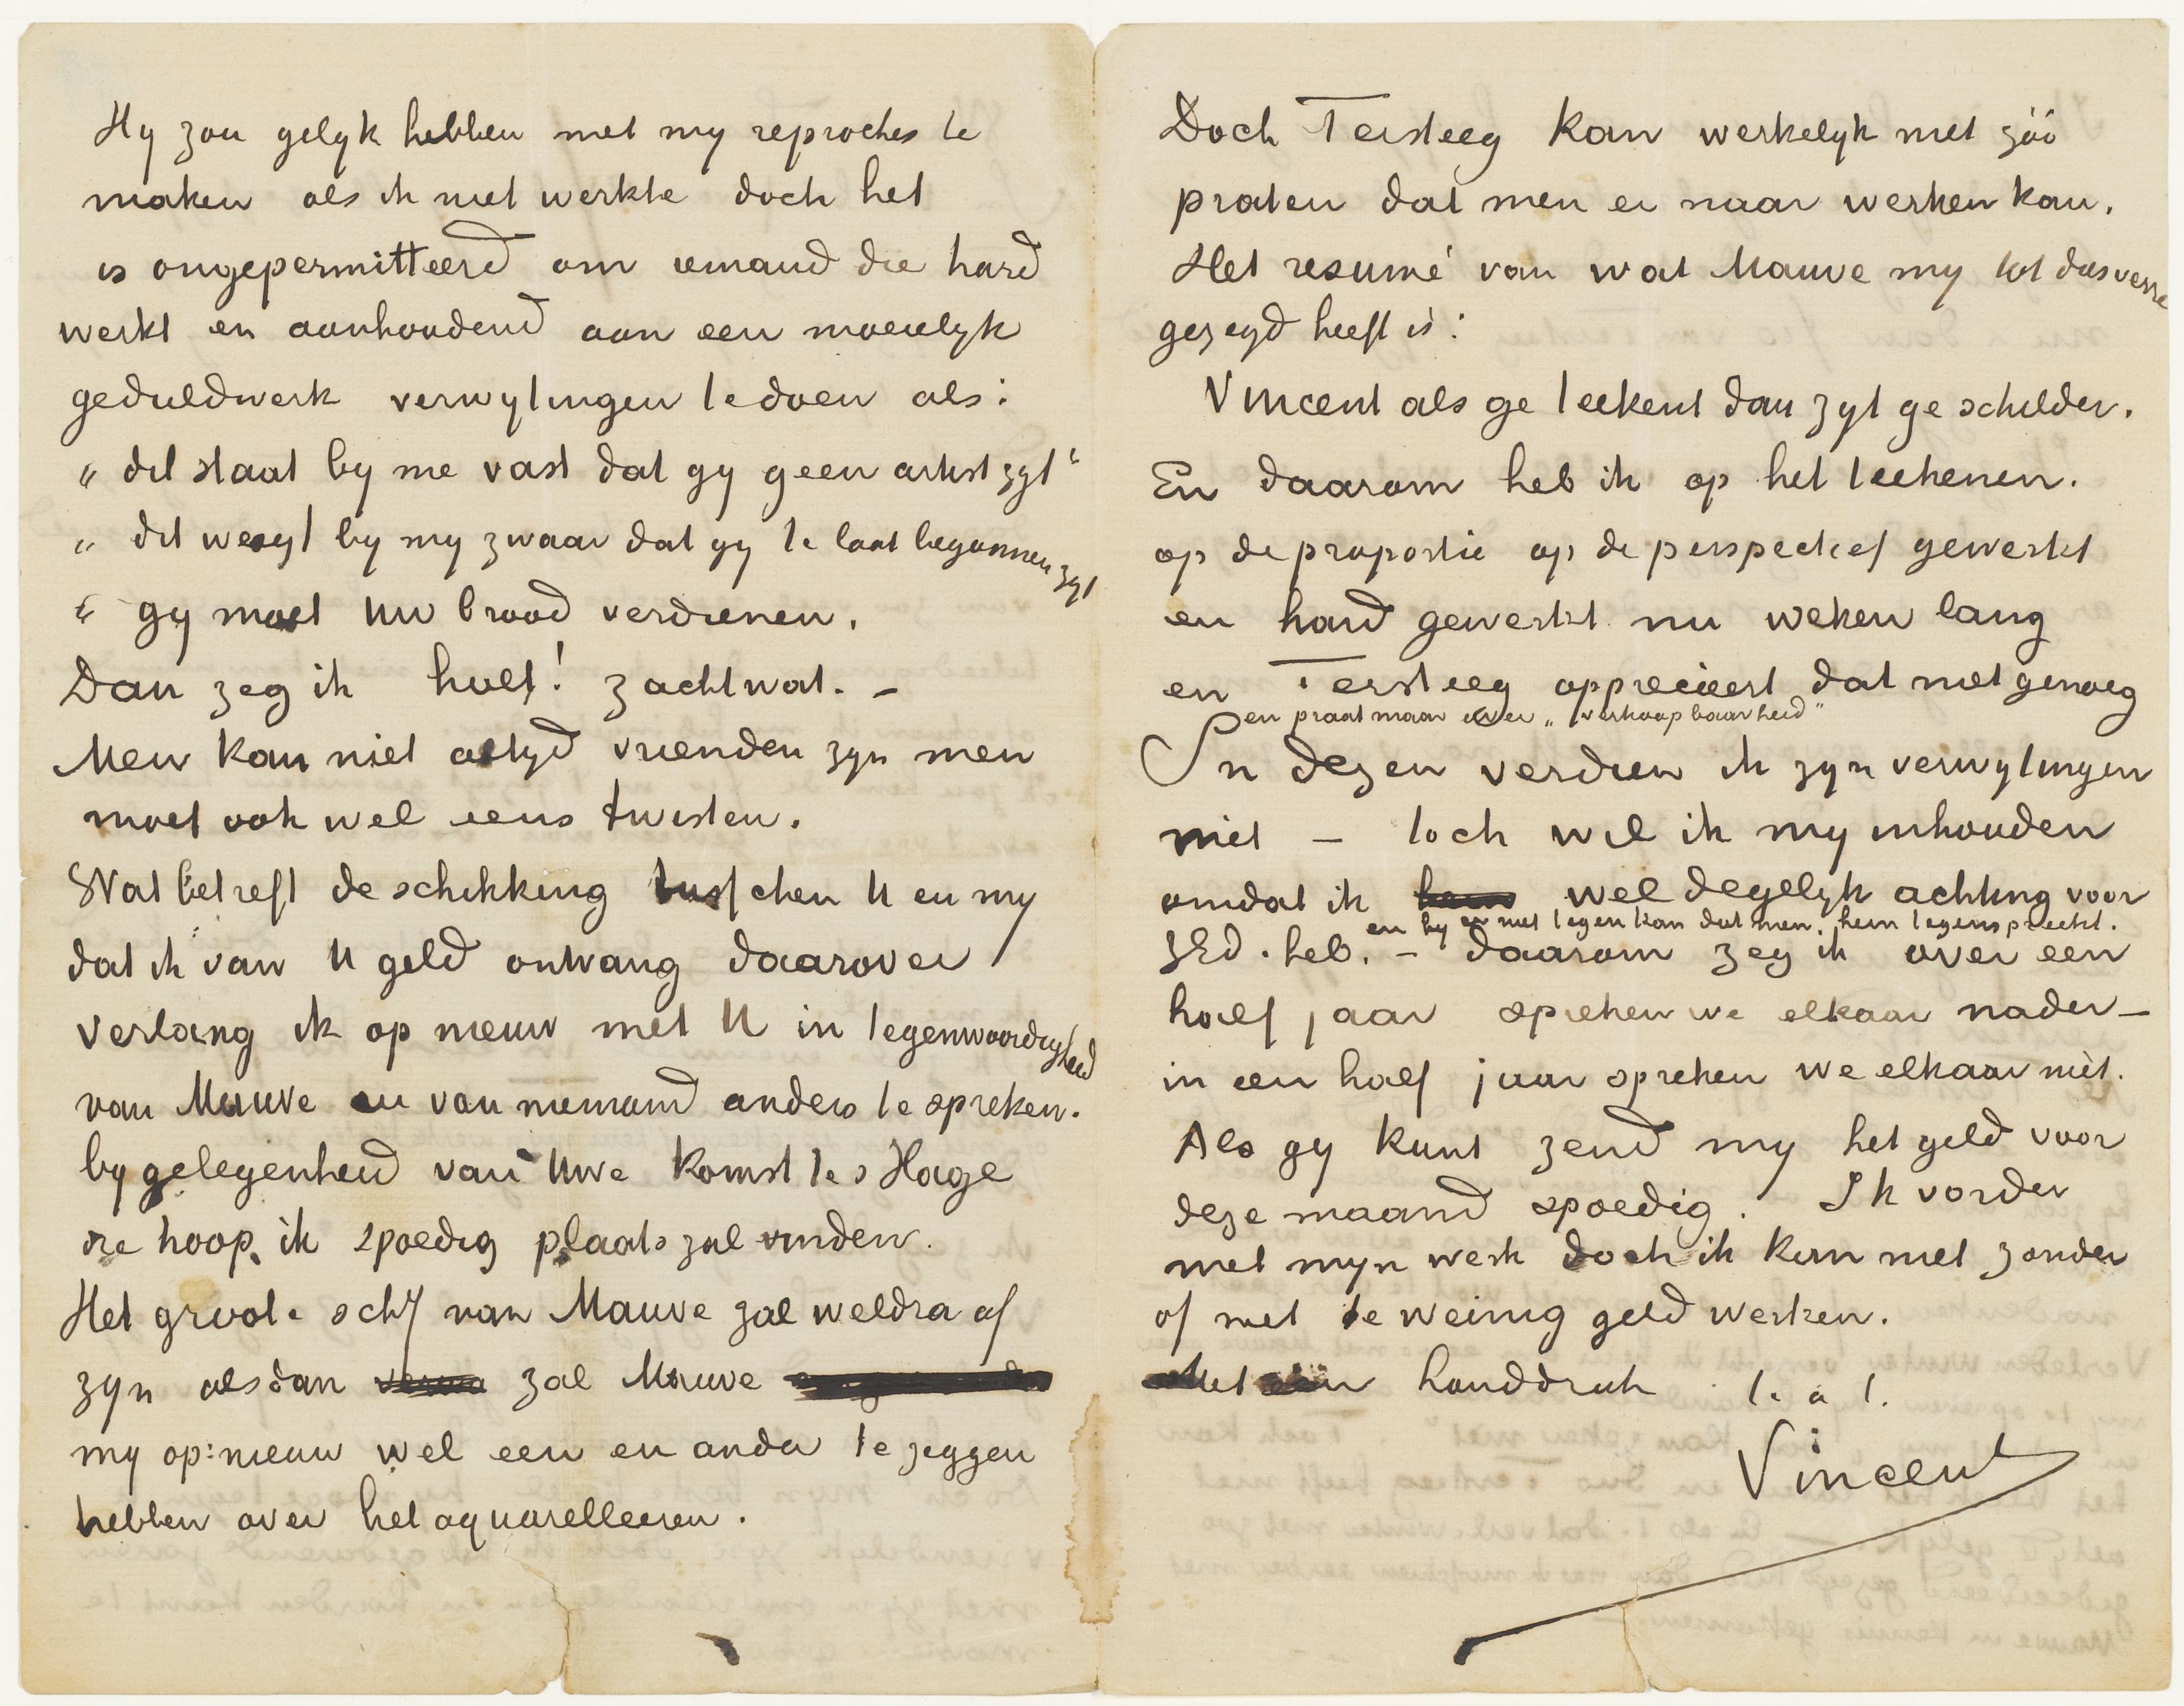 Hy zou gelyk hebben met my reproches te
maken als ik niet werkte doch het
is ongepermitteerd om iemand die hard
werkt en aanhoudend aan een moeielyk
geduldwerk verwytingen te doen als:
„ dit staat by me vast dat gy geen artist zyt“
„ dit weegt by my zwaar dat gy te laat begonnen zyt
„ gy moet uw brood verdienen.
Dan zeg ik halt! zacht wat. –
Men kan niet altyd vrienden zyn men
moet ook wel eens twisten.
Wat betreft de schikking tusschen U en my
dat ik van U geld ontvang daarover
verlang ik op nieuw met U in tegenwoordigheid
van Mauve en van niemand anders te spreken.
by gelegenheid van Uwe komst te s Hage
die hoop ik spoedig plaats zal vinden.
Het groote schy van Mauve zal weldra af
zyn alsdan zal Mauve
my op:nieuw wel een en ander te zeggen
hebben over het aquarelleeren.
Doch Tersteeg kan werkelyk niet zóó
praten dat men er naar werken kan.
Het resumé van wat Mauve my tot dusverre
gezegd heeft is:
Vincent als ge teekent dan zyt ge schilder.
En daarom heb ik op het teekenen.
op de proportie op de perspectief gewerkt
en hard gewerkt nu weken lang
en Tersteeg apprecieert dat niet genoeg
en praat maar over „verkoopbaarheid“
In dezen verdien ik zyn verwytingen
niet – toch wil ik my inhouden
omdat ik wel degelyk achting voor
en hy er niet tegen kan dat men hem tegenspreekt.
ZEd. heb. – daarom zeg ik over een
half jaar spreken we elkaar nader –
in een half jaar spreken we elkaar niet.
Als gy kunt zend my het geld voor
deze maand spoedig. Ik vorder
met myn werk doch ik kan niet zonder
of met te weinig geld werken.
Met een handdruk t. à t.
Vincent